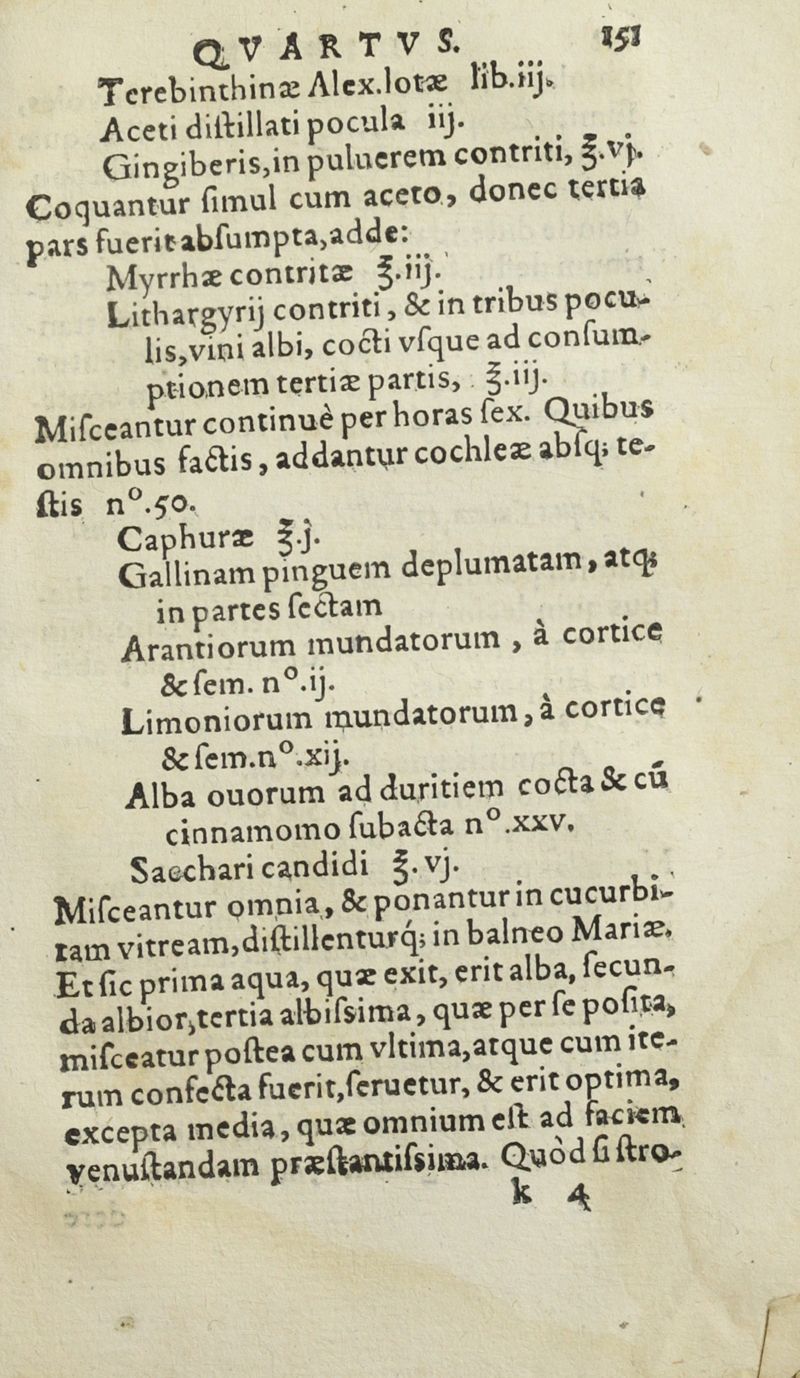 QVARTVS. 151
Terebinthinæ Alex.lotæ lib.iij.
Aceti diſtillati pocula iij.
Gingiberis,in puluerem contriti, ℥.vj.
Coquantur ſimul cum aceto, donec tertia
pars fuerit abſumpta,adde:
Myrrhæ contritæ ℥.iij.
Lithargyrij contriti, & in tribus pocu-
lis,vini albi, cocti vſque ad conſum-
ptionem tertiæ partis, ℥.iij.
Miſceantur continuè per horas ſex. Quibus
omnibus factis, addantur cochleæ abſq; te-
ſtis nº.50.
Caphuræ ℥.j.
Gallinam pinguem deplumatam, atq;
in partes ſectam
Arantiorum mundatorum, à cortice
& ſem. nº.ij.
Limoniorum mundatorum, à cortice
& ſem.nº.xij.
Alba ouorum ad duritiem cocta & cū
cinnamomo ſubacta nº.xxv.
Sacchari candidi ℥.vj.
Miſceantur omnia, & ponantur in cucurbi-
tam vitream,diſtillenturq́; in balneo Mariæ.
Et ſic prima aqua, quæ exit, erit alba, ſecun-
da albior,tertia albiſsima, quæ per ſe poſita,
miſceatur poſtea cum vltima,atque cum ite-
rum confecta fuerit,ſeruetur, & erit optima,
excepta media, quæ omnium eſt ad faciem
venuſtandam præſtantiſsima. Quòd ſi ſtro-
k 4